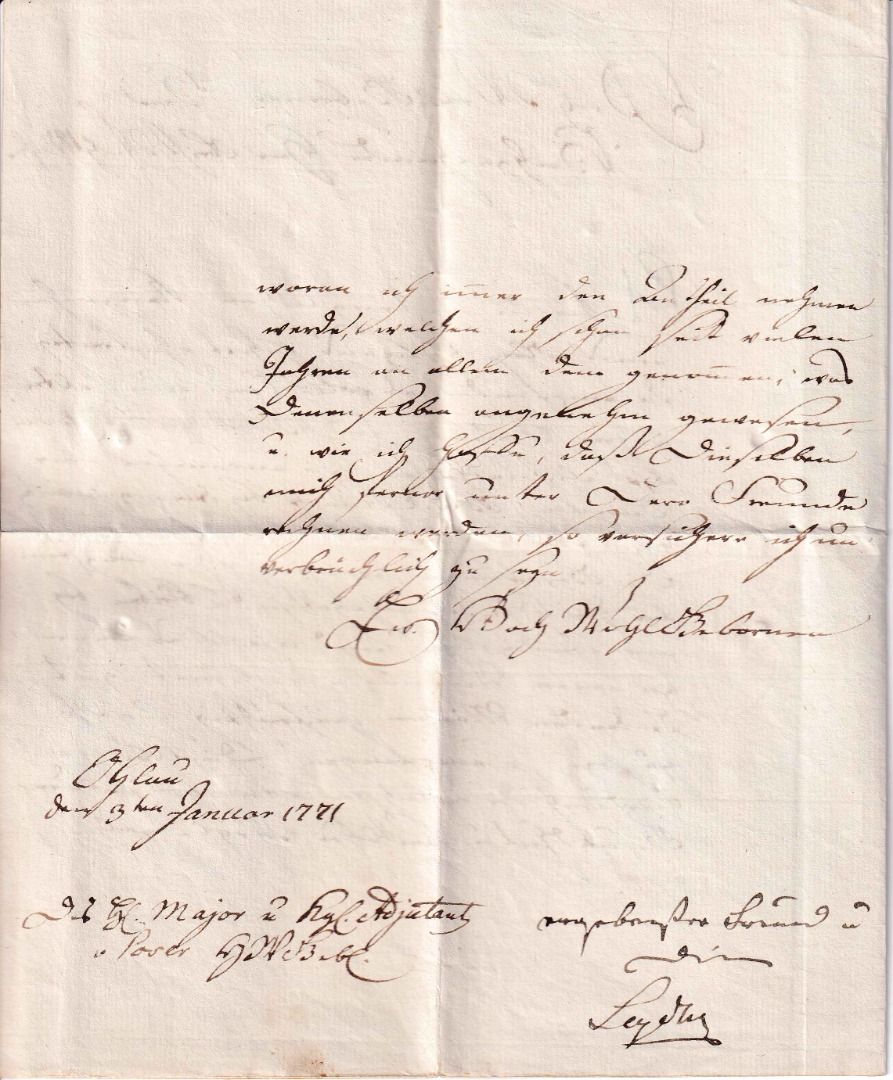 woran ich im̄er den Antheil nehmen
werde, welchen ich schon seit vielen
Jahren an allem dem genom̄en, was
Denenselben angenehm gewesen,
u. wie ich hoffe, daß Dieselben
mich ferner unter Dero Freunde
rechnen werden, so versichere ich un
verbrüchlich zu seyn
Ew. HochWohlGebornen
Ohlau
den 3ten Januar 1771
Des H. Major u Kgl. Adjutant
HWGeb.
ergebenster Freund u
Seydlitz